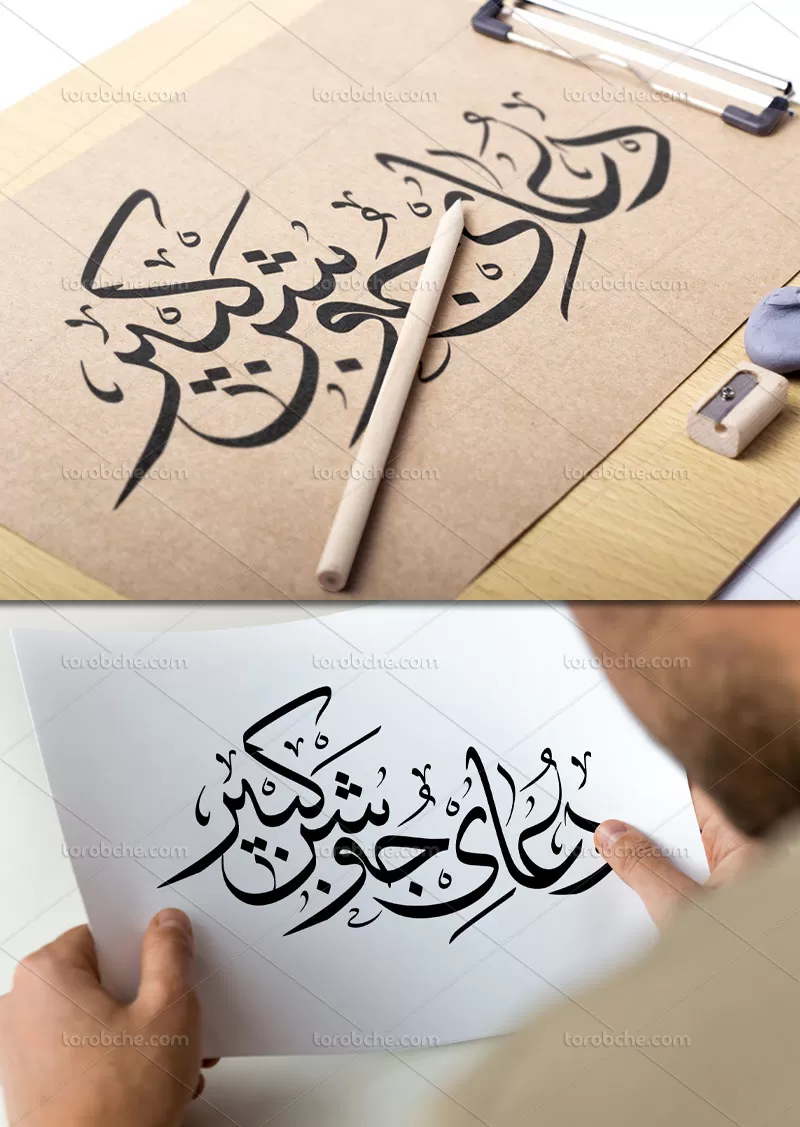 torobche.com torobche.com torobche.com
دعای جوشن کبیر
torobche.com torobche.com torobche.com
torobche.com torobche.com torobche.com
torobche.com torobche.com torobche.com
دعای جوشن کبیر
torobche.com torobche.com torobche.com
torobche.com torobche.com torobche.com